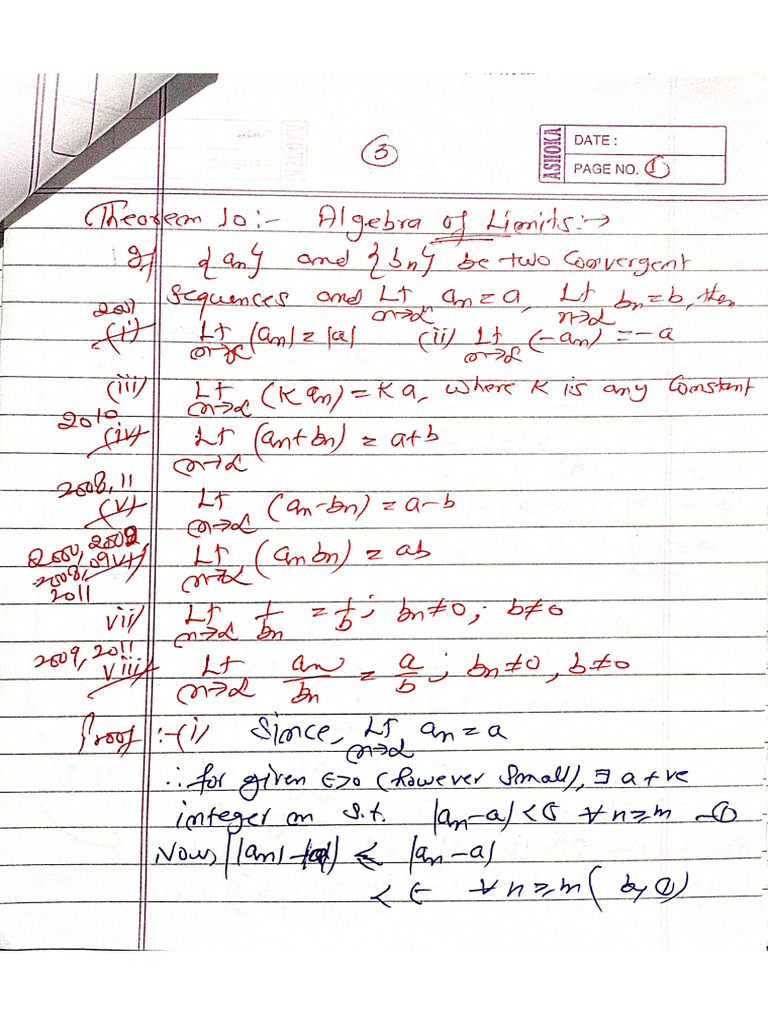 3
ASHOKA
DATE :
PAGE NO. 1
Theorem 10:- Algebra of Limits:→
If {an} and {bn} be two Convergent
Sequences and Lt n→∞ an = a, Lt n→∞ bn = b, then
2001
(i) Lt n→∞ |an| = |a| (ii) Lt n→∞ (-an) = -a
(iii) Lt n→∞ (K an) = K a, where K is any Constant
2010
(iv) Lt n→∞ (an+bn) = a+b
2008, 11
(v) Lt n→∞ (an-bn) = a-b
2000, 2002
2008, 09 vi) Lt n→∞ (an bn) = ab
2011
vii) Lt n→∞ 1/bn = 1/b; bn≠0; b≠0
2009, 2011
viii) Lt n→∞ an/bn = a/b; bn≠0, b≠0
Proof :-(i) Since, Lt n→∞ an = a
∴ for given ∈>0 (however Small), ∃ a +ve
integer m s.t. |an-a| < ∈ ∀ n≥m —①
Now, ||an| - |a|| ≤ |an-a|
< ∈ ∀ n≥m ( by ①)